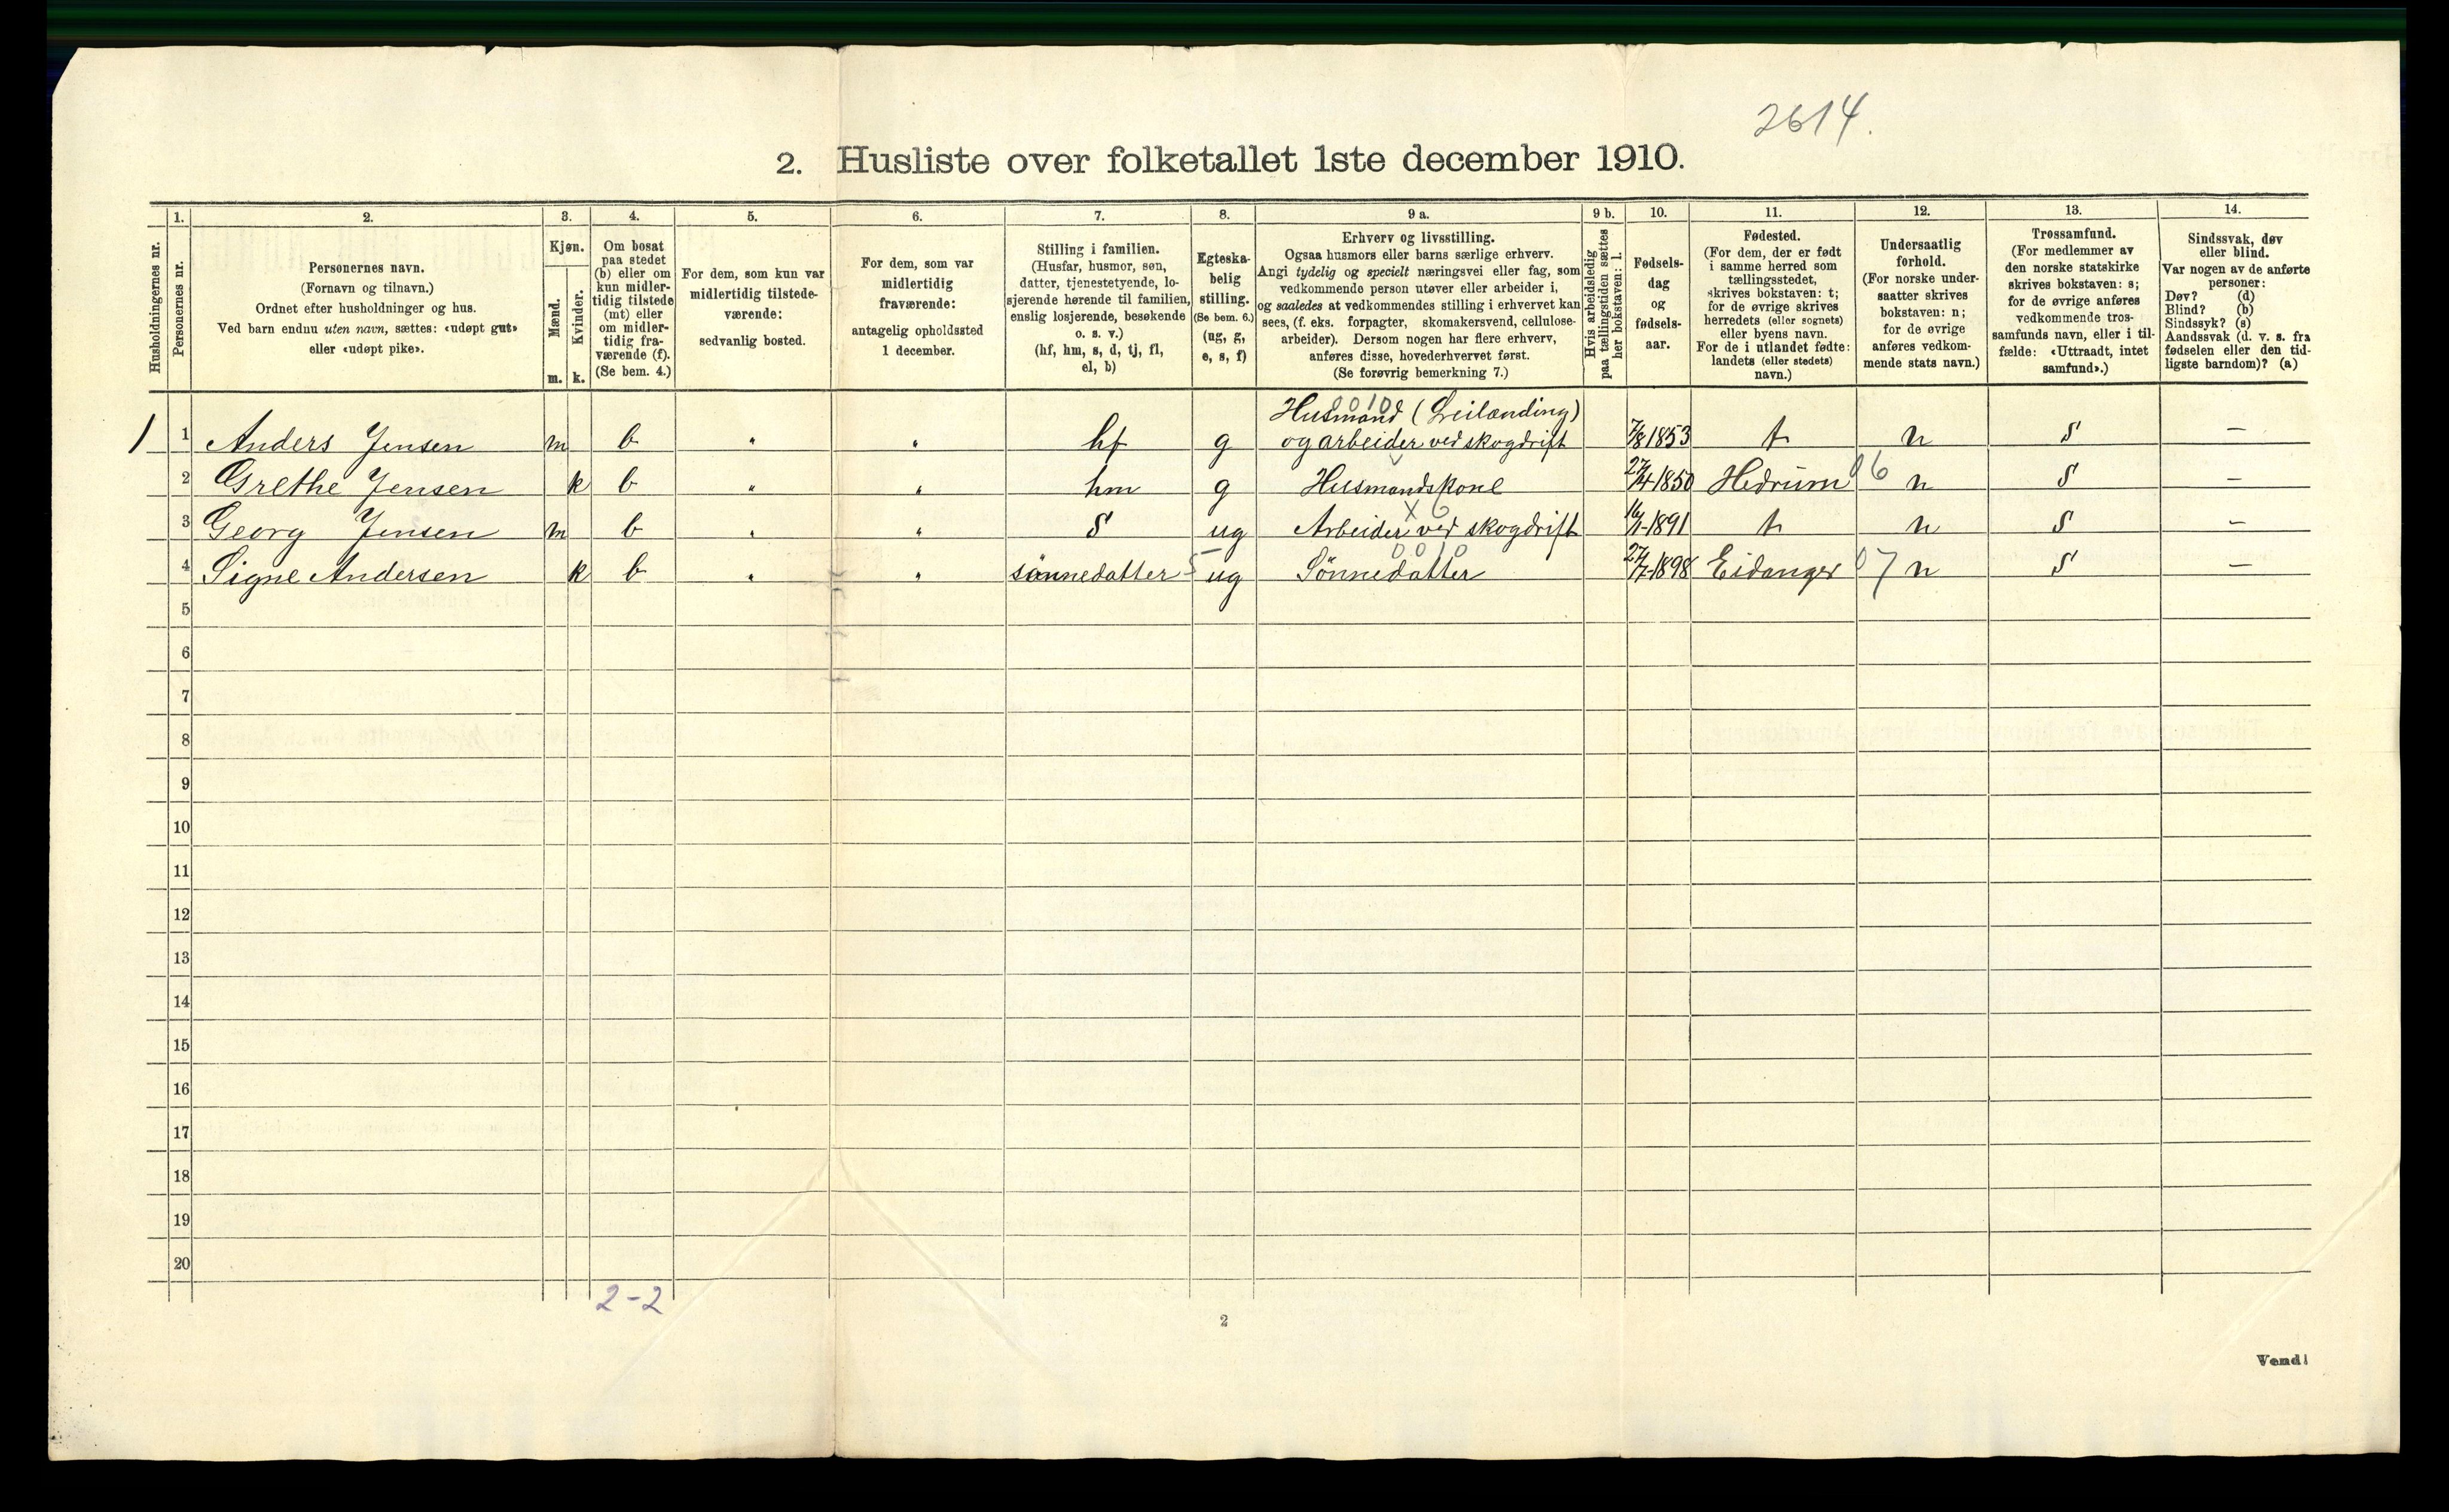 2614.
2. Husliste over folketallet 1ste december 1910.
Husholdningernes nr.
1.
Personernes nr.
2.
Personernes navn.
(Fornavn og tilnavn.)
Ordnet efter husholdninger og hus.
Ved barn endnu uten navn, sættes: «udøpt gut»
eller «udøpt pike».
3.
Kjøn.
Mænd.
Kvinder.
m. k.
4.
Om bosat
paa stedet
(b) eller om
kun midler-
tidig tilstede
(mt) eller
om midler-
tidig fra-
værende (f).
(Se bem. 4.)
5.
For dem, som kun var
midlertidig tilstede-
værende:
sedvanlig bosted.
6.
For dem, som var
midlertidig
fraværende:
antagelig opholdssted
1 december.
7.
Stilling i familien.
(Husfar, husmor, søn,
datter, tjenestetyende, lo-
sjerende hørende til familien,
enslig losjerende, besøkende
o. s. v.)
(hf, hm, s, d, tj, fl,
el, b)
8.
Egteska-
belig
stilling.
(Se bem. 6.)
(ug, g,
e, s, f)
9 a.
Erhverv og livsstilling.
Ogsaa husmors eller barns særlige erhverv.
Angi tydelig og specielt næringsvei eller fag, som
vedkommende person utøver eller arbeider i,
og saaledes at vedkommendes stilling i erhvervet kan
sees, (f. eks. forpagter, skomakersvend, cellulose-
arbeider). Dersom nogen har flere erhverv,
anføres disse, hovederhvervet først.
(Se forøvrig bemerkning 7.)
9 b.
Hvis arbeidsledig
paa tællingstiden sættes
her bokstaven: l.
10.
Fødsels-
dag
og
fødsels-
aar.
11.
Fødested.
(For dem, der er født
i samme herred som
tællingsstedet,
skrives bokstaven: t;
for de øvrige skrives
herredets (eller sognets)
eller byens navn.
For de i utlandet fødte:
landets (eller stedets)
navn.)
12.
Undersaatlig
forhold.
(For norske under-
saatter skrives
bokstaven: n;
for de øvrige
anføres vedkom-
mende stats navn.)
13.
Trossamfund.
(For medlemmer av
den norske statskirke
skrives bokstaven: s;
for de øvrige anføres
vedkommende tros-
samfunds navn, eller i til-
fælde: «Uttraadt, intet
samfund».)
14.
Sindssvak, døv
eller blind.
Var nogen av de anførte
personer:
Døv? (d)
Blind? (b)
Sindssyk? (s)
Aandssvak (d. v. s. fra
fødselen eller den tid-
ligste barndom)? (a)
0010
Husmand (Leilænding)
1 1 Anders Jensen m b " " hf g og arbeider ved skogdrift 7/8 1853 t n s –
2 Grethe Jensen k b " " hm g Husmandskone 27/4 1850 Hedrum 06 n s –
x 6
3 Georg Jensen m b " " s ug Arbeider ved skogdrift 16/1-1891 t n s –
0010
4 Signe Andersen k b " " sønnedatter 5 ug Sønnedatter 27/7-1898 Eidanger 07 n s –
5
6
7
8
9
10
11
12
13
14
15
16
17
18
19
20
2-2
2
Vend!